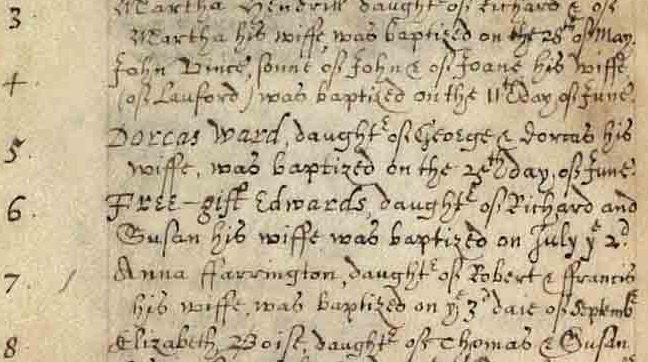 3 Martha Hendrill daught^r of Richard & of
Martha his wiffe, was baptized on the 28^th of May.
4 John Vince, sonne of John & of Joane his wiffe
(of Lauford) was baptized on the 11^th day of June.
5. Dorcas Ward, daught^r of George & Dorcas his
wiffe, was baptized on the 25^th day, of June.
6. Free-gift Edwards, daught^r of Richard and
Susan his wiffe was baptized on July y^e 2^d.
7. Anna ffarrington, daught^r of Robert & ffrancis
his wiffe, was baptized on y^e 3^d daie of Septemb^r
8 Elizabeth Boise, daught^r of Thomas & Susan